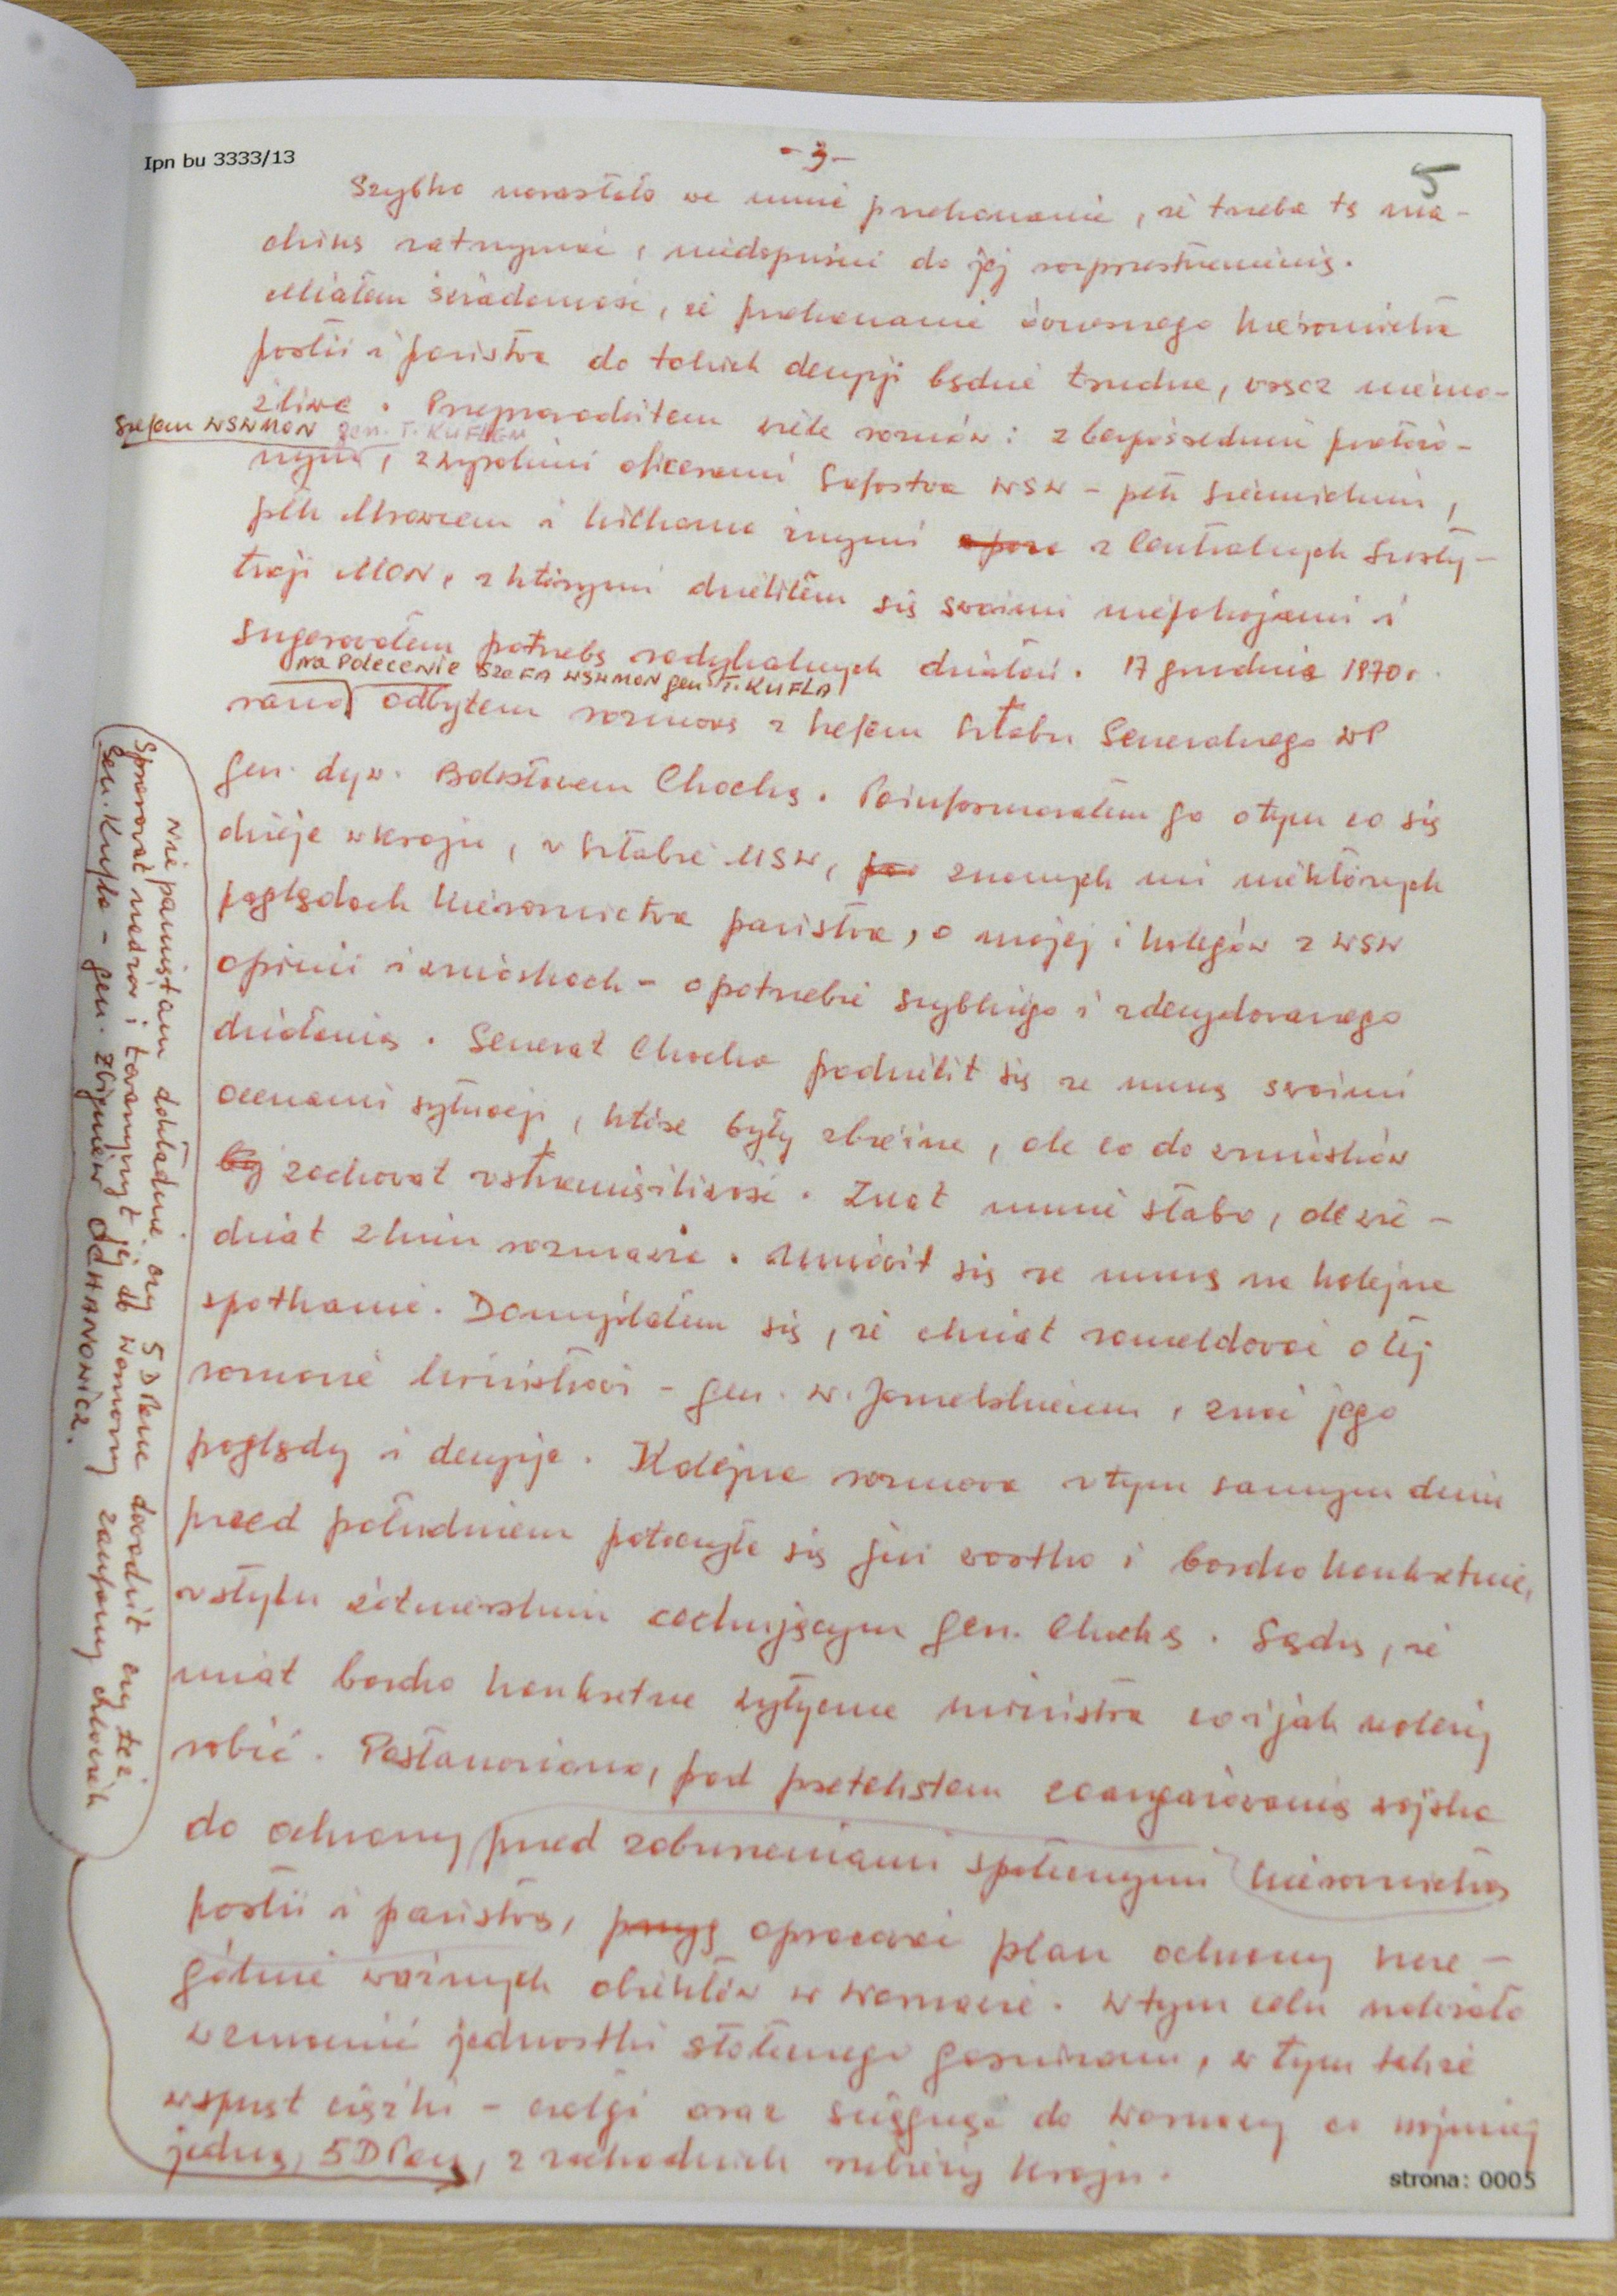 Ipn bu 3333/13
- 3 -
5
Szybko narastało we mnie przekonanie, że trzeba tę ma-
chinę zatrzymać, niedopuścić do jej rozprzestrzenienia.
Miałem świadomość, że przekonanie ówczesnego kierownictwa
partii i państwa do takich decyzji będzie trudne, wręcz niemo-
żliwe. Przeprowadziłem wiele rozmów: z bezpośrednim przełożo-
szefem WSWMON gen. T. KUFLEM
nym, z wysokimi oficerami Szefostwa WSW - płk
płk i kilkoma innymi z Centralnych Insty-
tucji MON, z którymi dzieliłem się swoimi niepokojami i
sugerowałem potrzebę radykalnych działań. 17 grudnia 1970 r.
na polecenie SZEFA WSWMON gen. T. KUFLA
rano odbyłem rozmowę z szefem Sztabu Generalnego WP
gen. dyw. Bolesławem Chochą. Poinformowałem go o tym co się
dzieje w kraju, w Sztabie MSW, znanych mi niektórych
poglądach kierownictwa państwa, o mojej i kolegów z WSW
opinii i wnioskach - o potrzebie szybkiego i zdecydowanego
działania. Generał Chocha podzielił się ze mną swoimi
ocenami sytuacji, które były zbieżne, ale co do wniosków
by zachował wstrzemięźliwość. Znał mnie słabo, ale wie-
dział z kim rozmawia. Umówił się ze mną na kolejne
spotkanie. Domyślałem się, że chciał zameldować o tej
rozmowie ministrowi - gen. W. Jaruzelskiemu, znać jego
poglądy i decyzje. Kolejna rozmowa w tym samym dniu
przed południem potoczyła się już wartko i bardzo konkretnie,
w stylu żołnierskim cechującym gen. Chochę. Sądzę, że
miał bardzo konkretne wytyczne ministra co i jak należy
robić. Postanowiono, pod pretekstem zaangażowania wojska
do ochrony przed zaburzeniami społecznymi kierownictwa
partii i państwa, opracować plan ochrony szcze-
gólnie ważnych obiektów w Warszawie. W tym celu należało
wzmocnić jednostki stołecznego garnizonu, w tym także
w sprzęt ciężki - czołgi oraz ściągnąć do Warszawy co najmniej
jedną, 5DPanc, z zachodnich rubieży kraju.
Nie pamiętam dokładnie czy 5DPanc dowodził czy też
sprawował nadzór i towarzyszył jej do Warszawy zaufany człowiek
gen. Kufla - gen. Zbigniew OCHANOWICZ.
strona: 0005